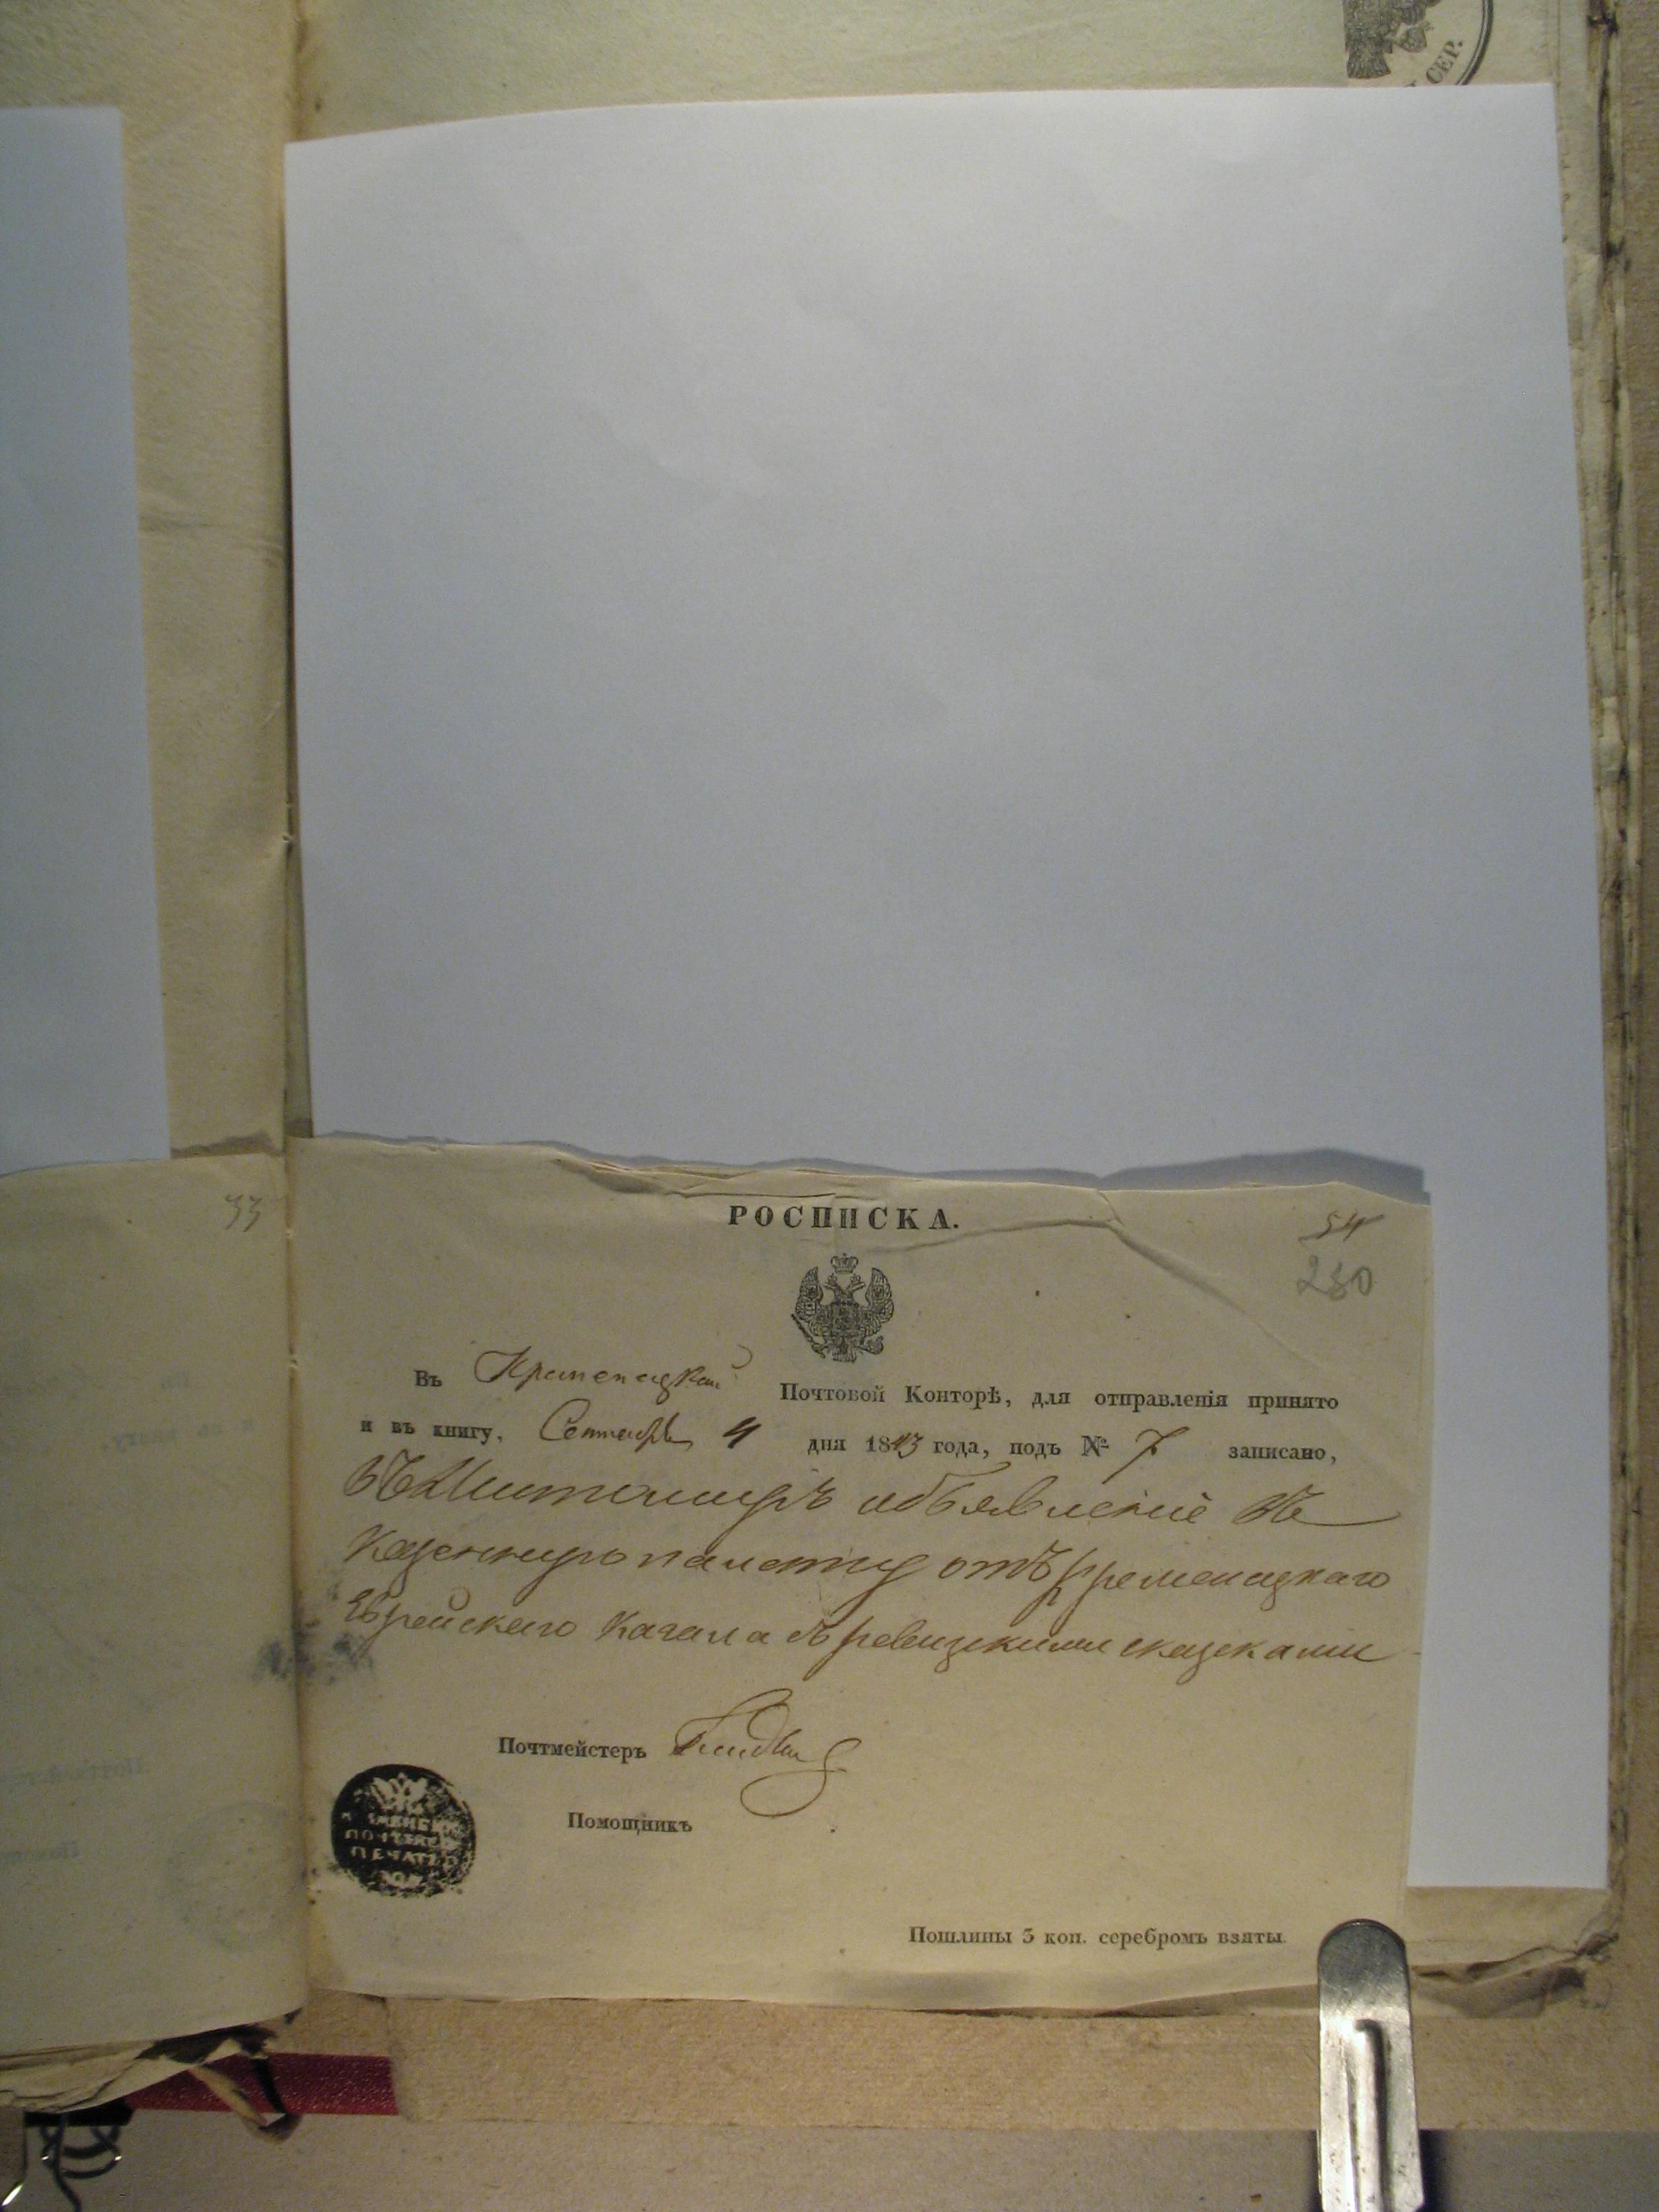 СЕР.
33
РОСПИСКА.
54
280
Въ Кременецкой Почтовой Конторѣ, для отправленія принято
и въ книгу, Сентября 4 дня 1843 года, подъ № 7 записано,
въ Житомиръ объявленіе въ
Казенную палату отъ Кременецкаго
Еврейскаго Кагала съ ревизкими сказками
Почтмейстеръ
Помощникъ
ПОЧТОВ
ПЕЧАТЬ
Пошлины 3 коп. серебромъ взяты.